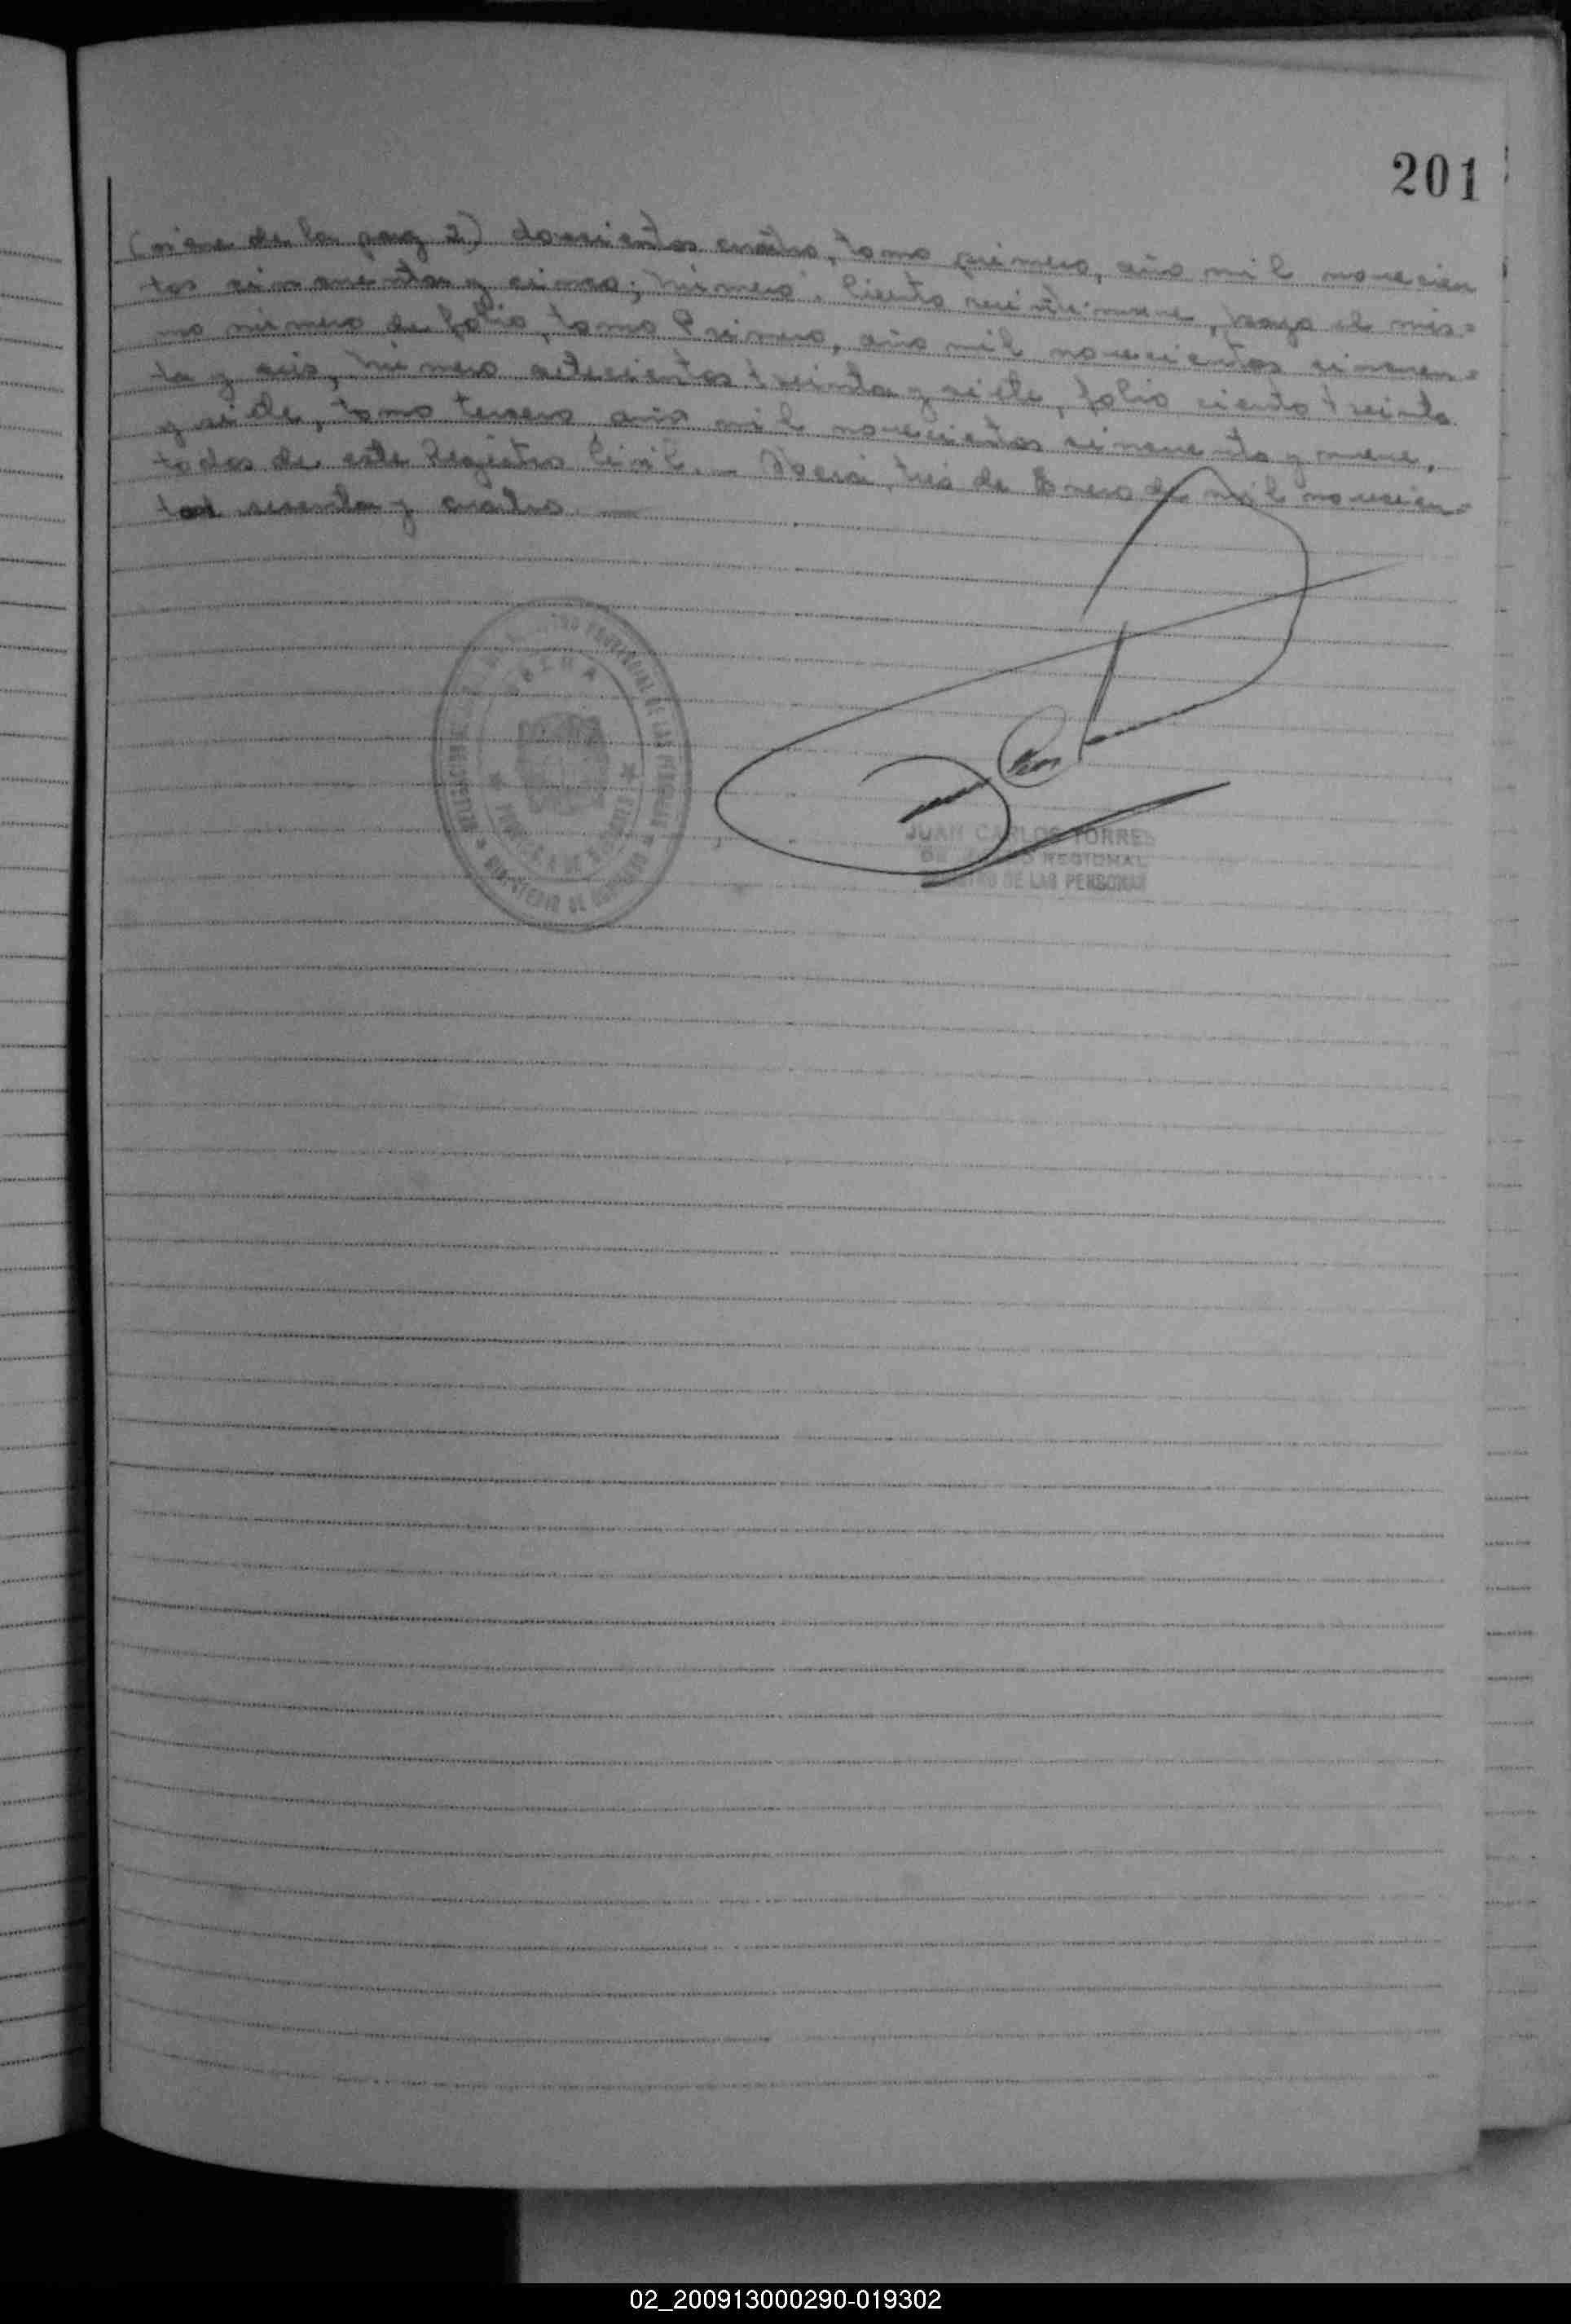 201
(viene de la pag 2) doscientos cuatro, tomo primero, año mil novecien
tos cincuenta y cinco; número: Ciento veintinueve, bajo el mis=
mo número de folio, tomo Primero, año mil novecientos cincuen=
ta y seis, número setecientos treinta y siete, folio ciento treinta
y siete, tomo tercero año mil novecientos cincuenta y nueve,
todos de este Registro Civil. - Oberá, tres de Enero de mil novecien=
tos sesenta y cuatro. —
PROVINCIAL DE LAS PERSONAS
OBERA
MINISTERIO DE GOBIERNO
JUAN CARLOS TORRES
REGIONAL
DE LAS PERSONAS
02_200913000290-019302